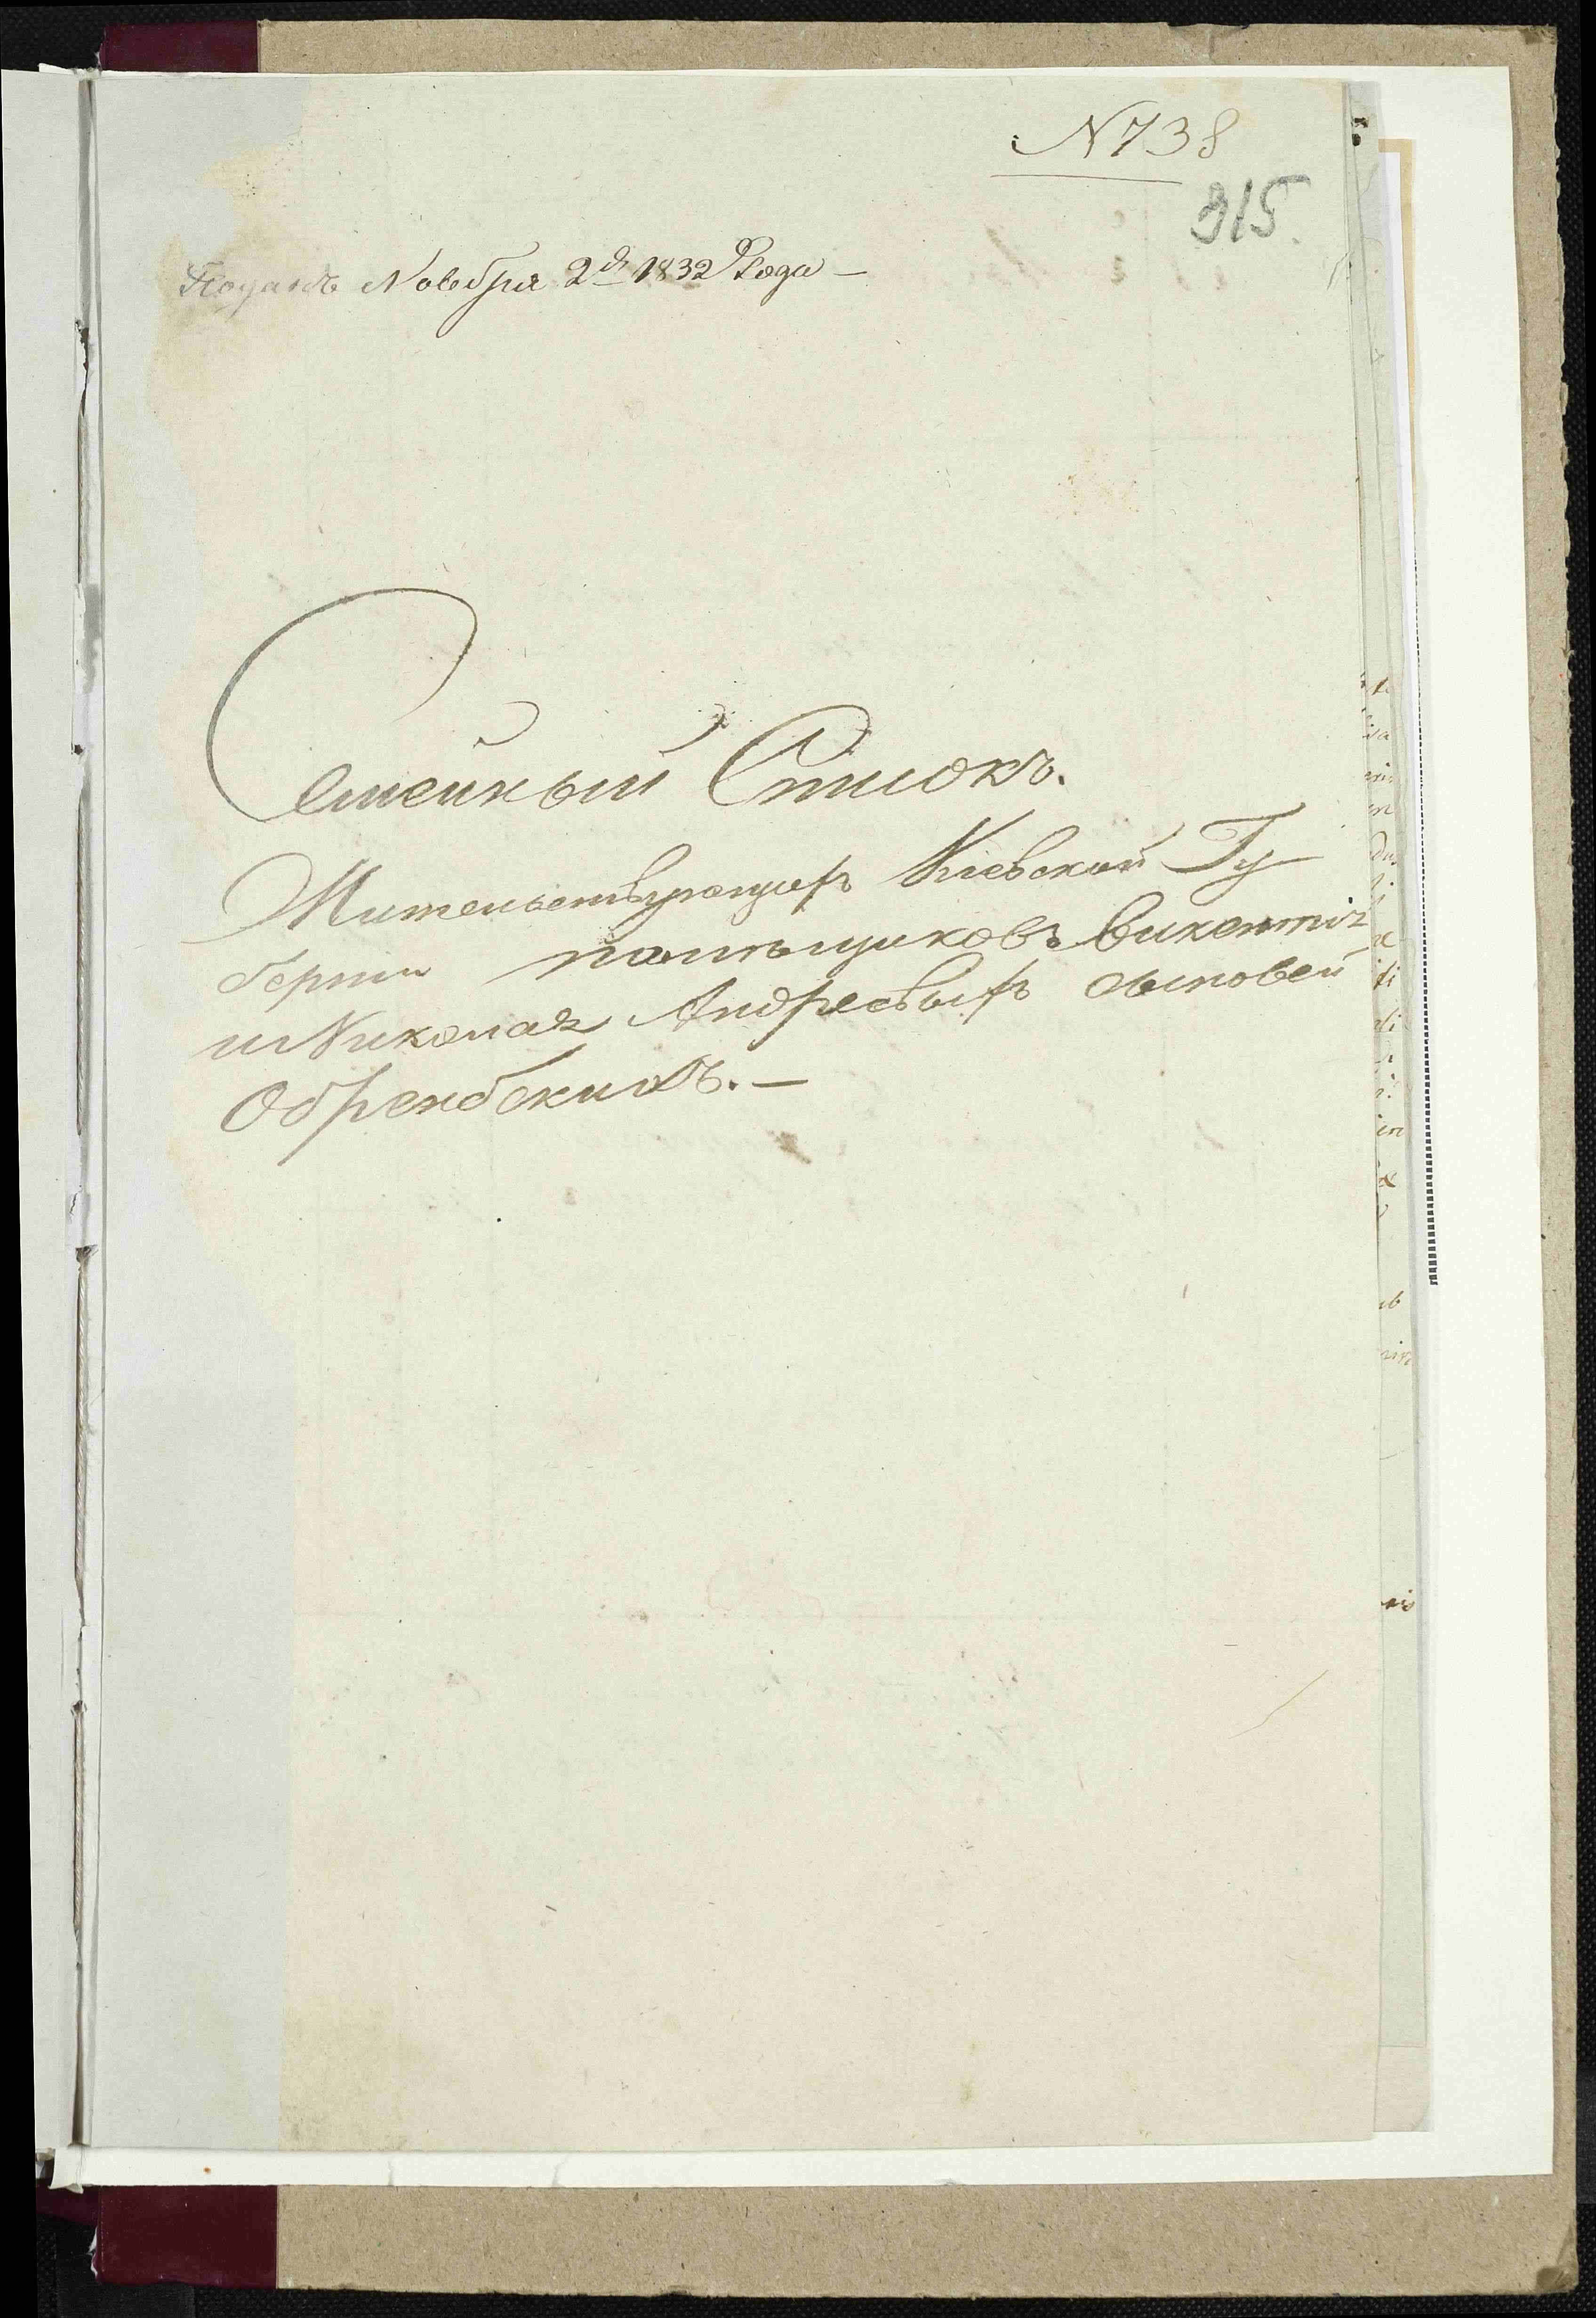 N 738
315.
Поданъ Ноября 2д. 1832 Года —
Семейный Списокъ.
Жительствующихъ Кіевской Гу
берніи помѣщиковъ Викентія
и Николая Андреевыхъ сыновей
Обрембскихъ. —